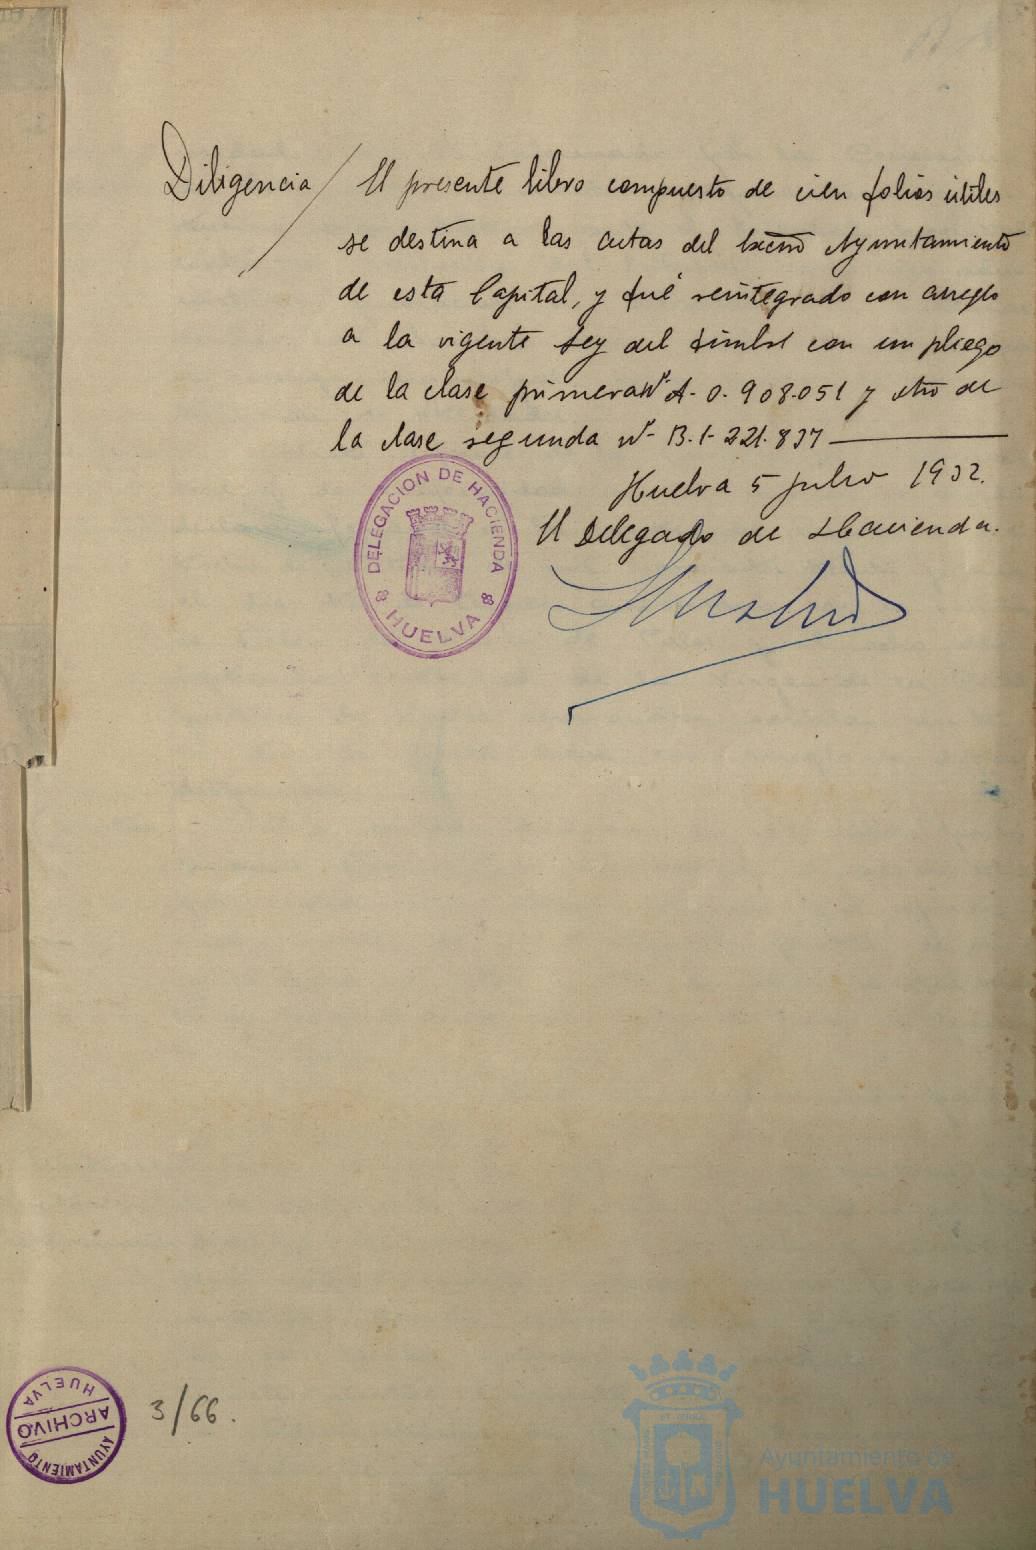 Diligencia / El presente libro compuesto de cien folios útiles
se destina a las actas del Excmo Ayuntamiento
de esta Capital, y fué reintegrado con arreglo
a la vigente Ley del timbre con un pliego
de la clase primera Nº A-0.908.051 y otro de
la clase segunda nº B.1-221.837
Huelva 5 julio 1932.
El Delegado de Hacienda.
DELEGACION DE HACIENDA
HUELVA
AYUNTAMIENTO
ARCHIVO
HUELVA
3/66.
Ayuntamiento de
HUELVA